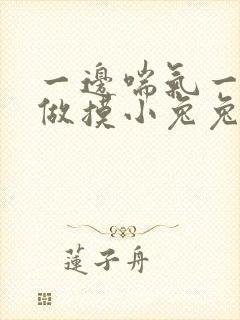 一邊喘氣一
做摸小兔兔
蓮子舟